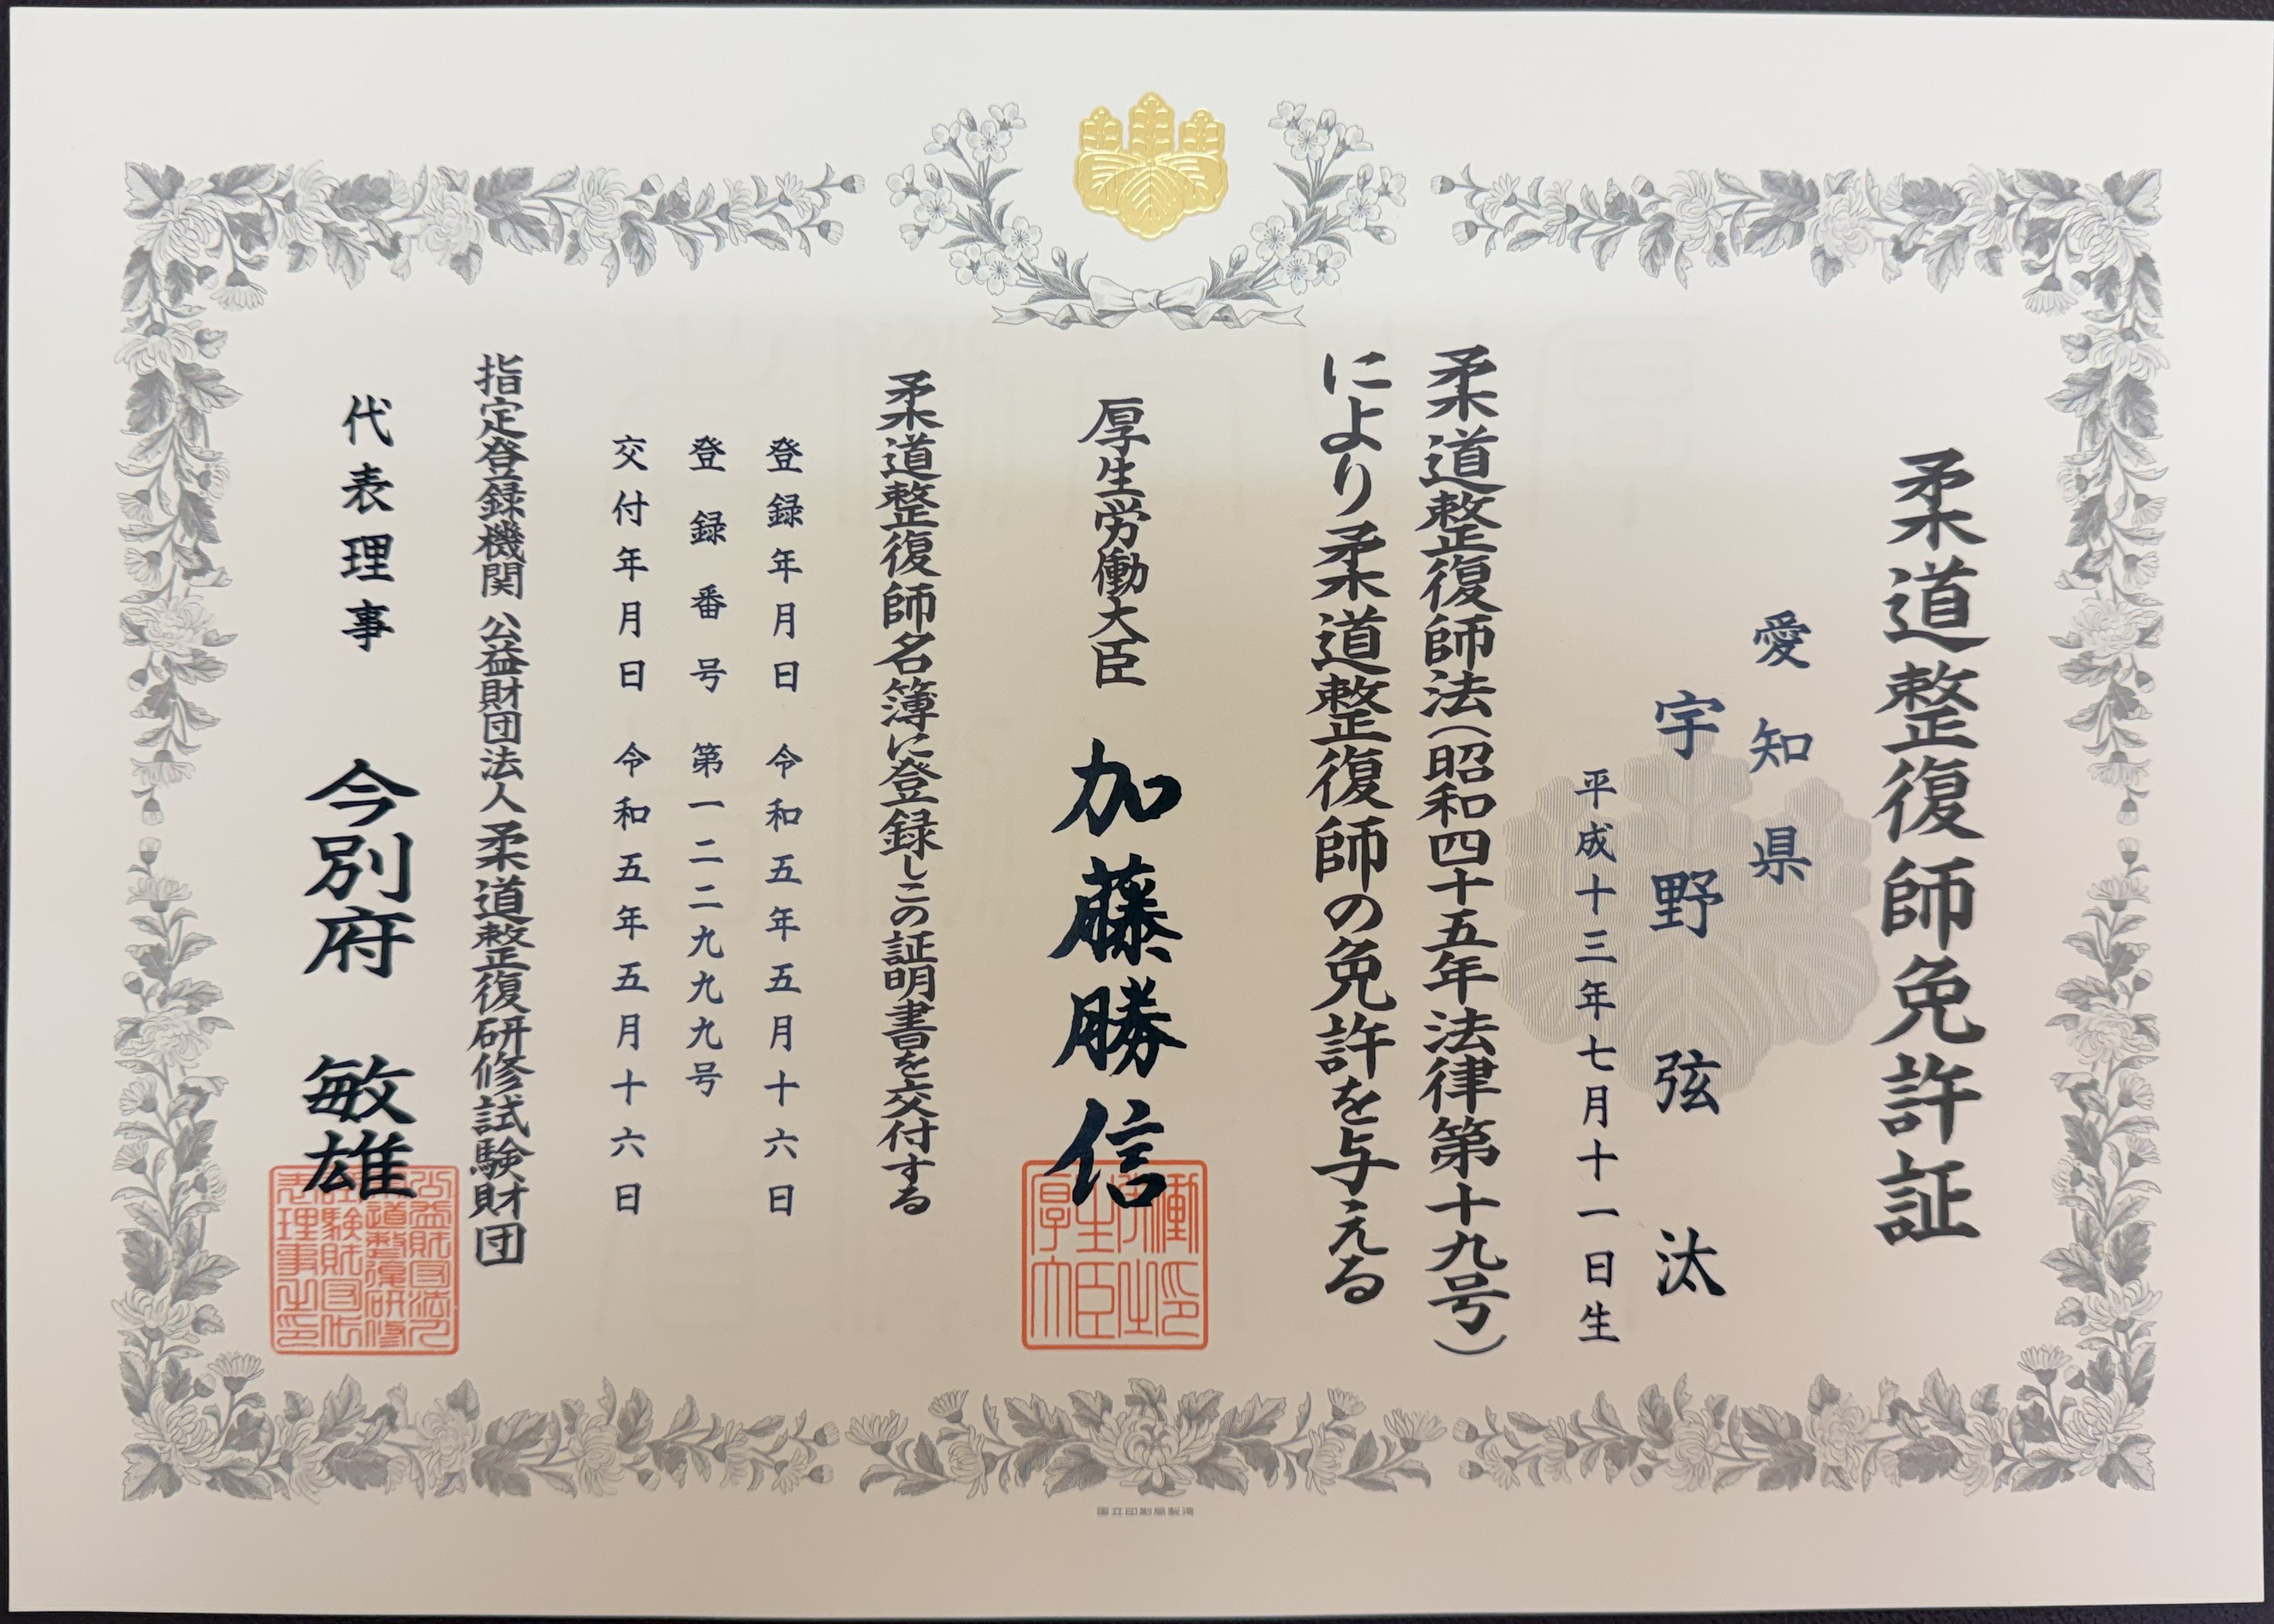 柔道整復師免許証
愛知県
宇野弦汰
平成十三年七月十一日生
柔道整復師法(昭和四十五年法律第十九号)
により柔道整復師の免許を与える
厚生労働大臣 加藤勝信
柔道整復師名簿に登録しこの証明書を交付する
登録年月日 令和五年五月十六日
登録番号 第一二二九九九号
交付年月日 令和五年五月十六日
指定登録機関 公益財団法人柔道整復研修試験財団
代表理事 今別府 敏雄
国立印刷局製造